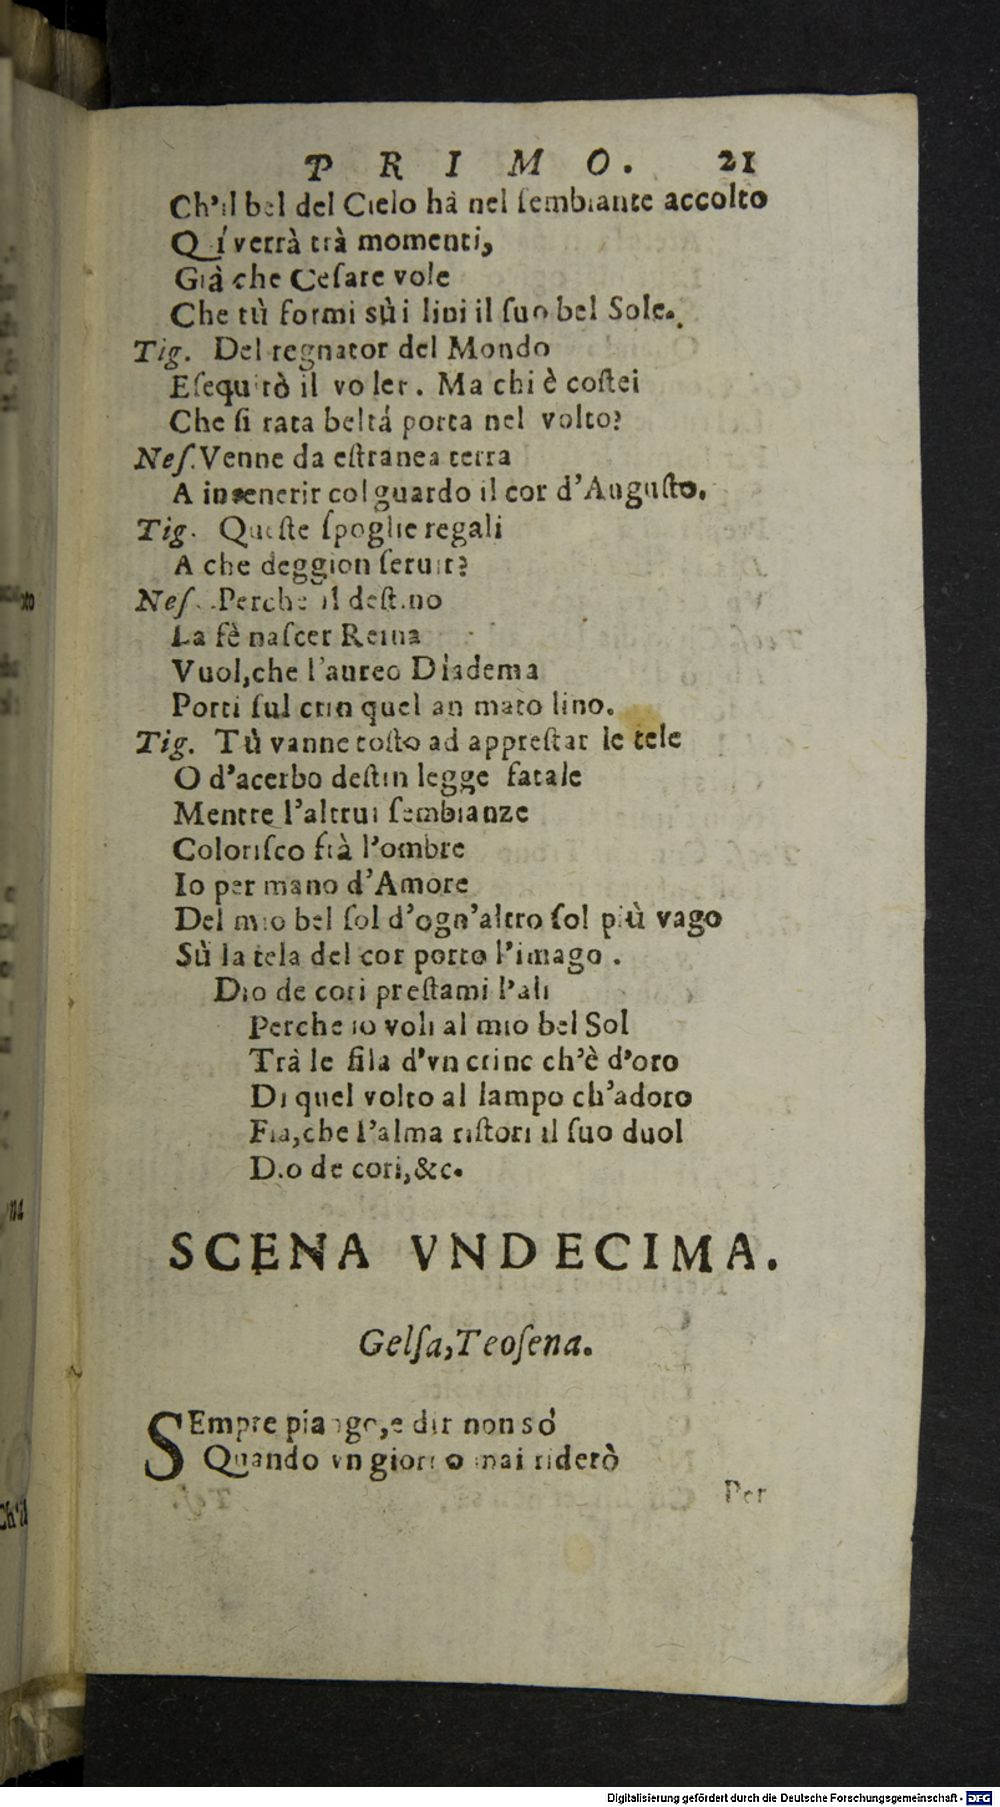 PRIMO. 21
Ch'il bel del Cielo hà nel ſembiante accolto
Quí verrà trà momenti,
Già che Ceſare vole
Che tù formi sù i lini il ſuo bel Sole.
Tig. Del regnator del Mondo
Eſequirò il voler. Ma chi è coſtei
Che ſi rata beltá porta nel volto?
Neſ. Venne da eſtranea terra
A intenerir col guardo il cor d'Auguſto.
Tig. Queſte ſpoglie regali
A che deggion ſeruir?
Neſ. Perche il deſtino
La fè naſcer Reina
Vuol, che l'aureo Diadema
Porti ſul crin quel animato lino.
Tig. Tù vanne toſto ad appreſtar le tele
O d'acerbo deſtin legge fatale
Mentre l'altrui ſembianze
Coloriſco frà l'ombre
Io per mano d'Amore
Del mio bel ſol d'ogn'altro ſol più vago
Sù la tela del cor porto l'imago.
Dio de cori preſtami l'ali
Perche io voli al mio bel Sol
Trà le fila d'vn crine ch'è d'oro
Di quel volto al lampo ch'adoro
Fia, che l'alma riſtori il ſuo duol
Dio de cori, &c.
SCENA VNDECIMA.
Gelſa, Teoſena.
SEmpre piango, e dir non só
Quando vn giorno mai riderò
Per
Ch'il
Digitalisierung gefördert durch die Deutsche Forschungsgemeinschaft - DFG